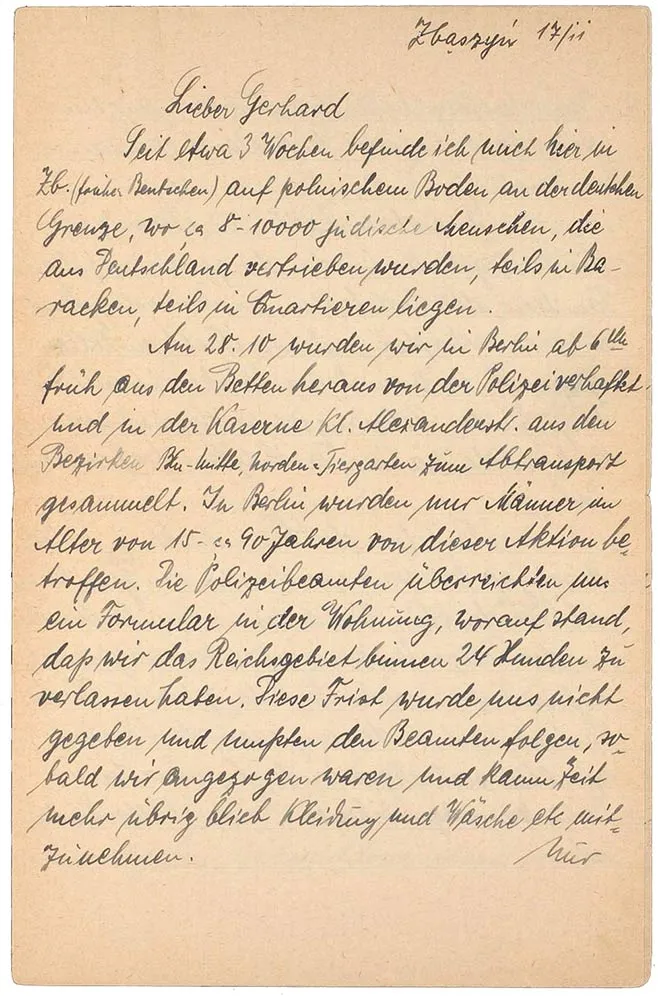 Zbąszyń 17/11
Lieber Gerhard
Seit etwa 3 Wochen befinde ich mich hier in
Zb. (früher Bentschen) auf polnischem Boden an der deutschen
Grenze, wo ca 8-10000 jüdische Menschen, die
aus Deutschland vertrieben wurden, teils in Ba-
racken, teils in Quartieren liegen.
Am 28.10 wurden wir in Berlin ab 6 Uhr
früh aus den Betten heraus von der Polizei verhaftet
und in der Kaserne Kl. Alexanderstr. aus den
Bezirken Bln-Mitte, Norden-Tiergarten zum Abtransport
gesammelt. In Berlin wurden nur Männer im
Alter von 15- ca 90 Jahren von dieser Aktion be-
troffen. Die Polizeibeamten überreichten uns
ein Formular in der Wohnung, worauf stand,
daß wir das Reichsgebiet binnen 24 Stunden zu
verlassen haben. Diese Frist wurde uns nicht
gegeben und mußten den Beamten folgen, so-
bald wir angezogen waren und kaum Zeit
mehr übrig blieb Kleidung und Wäsche etc mit-
zunehmen.
Nur